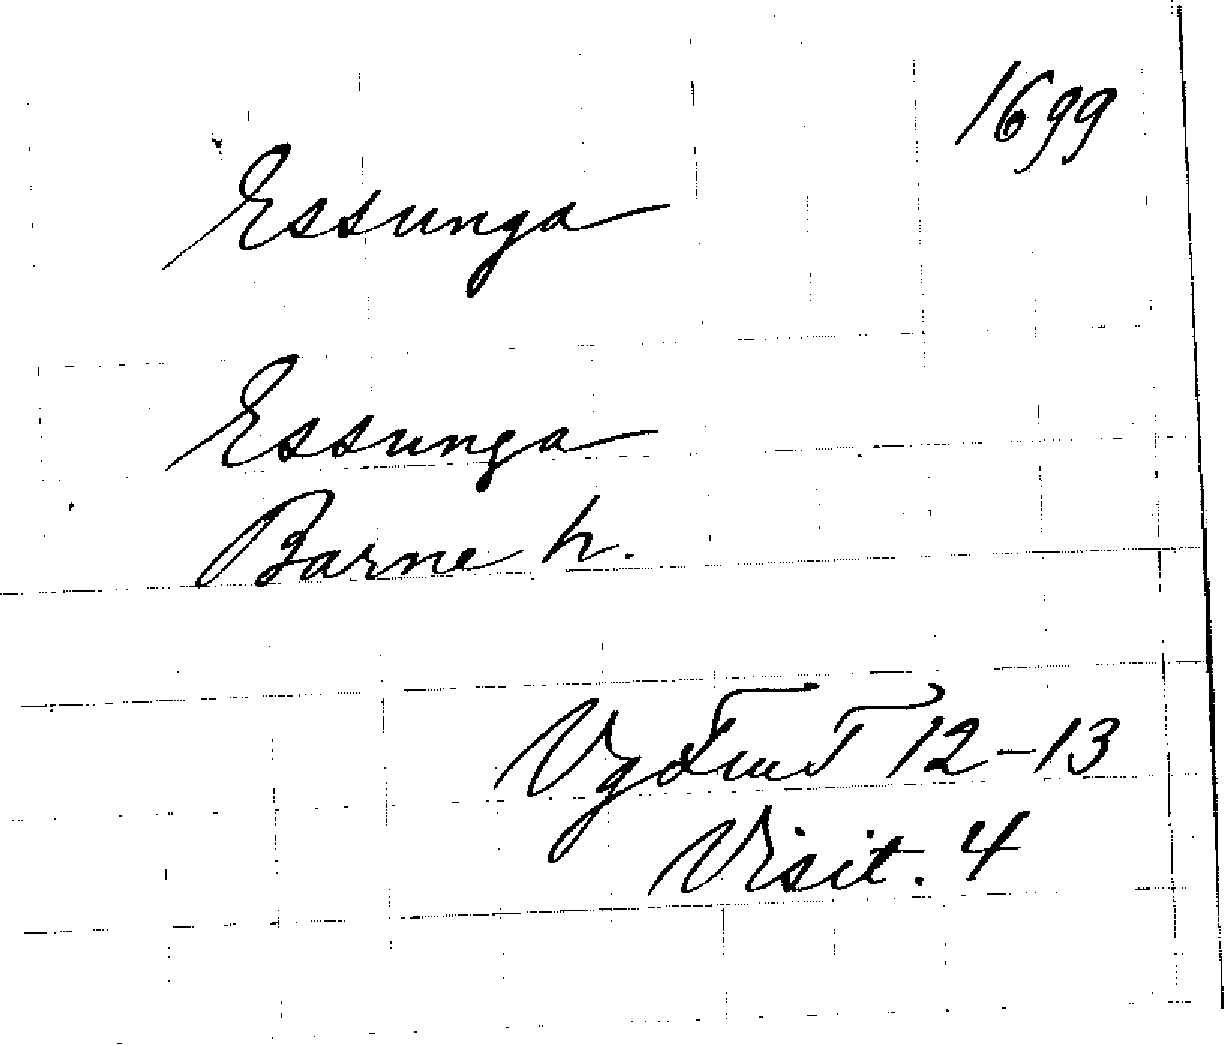 1699
Essunga
Essunga
Barne h.
12-13
Visit. 4